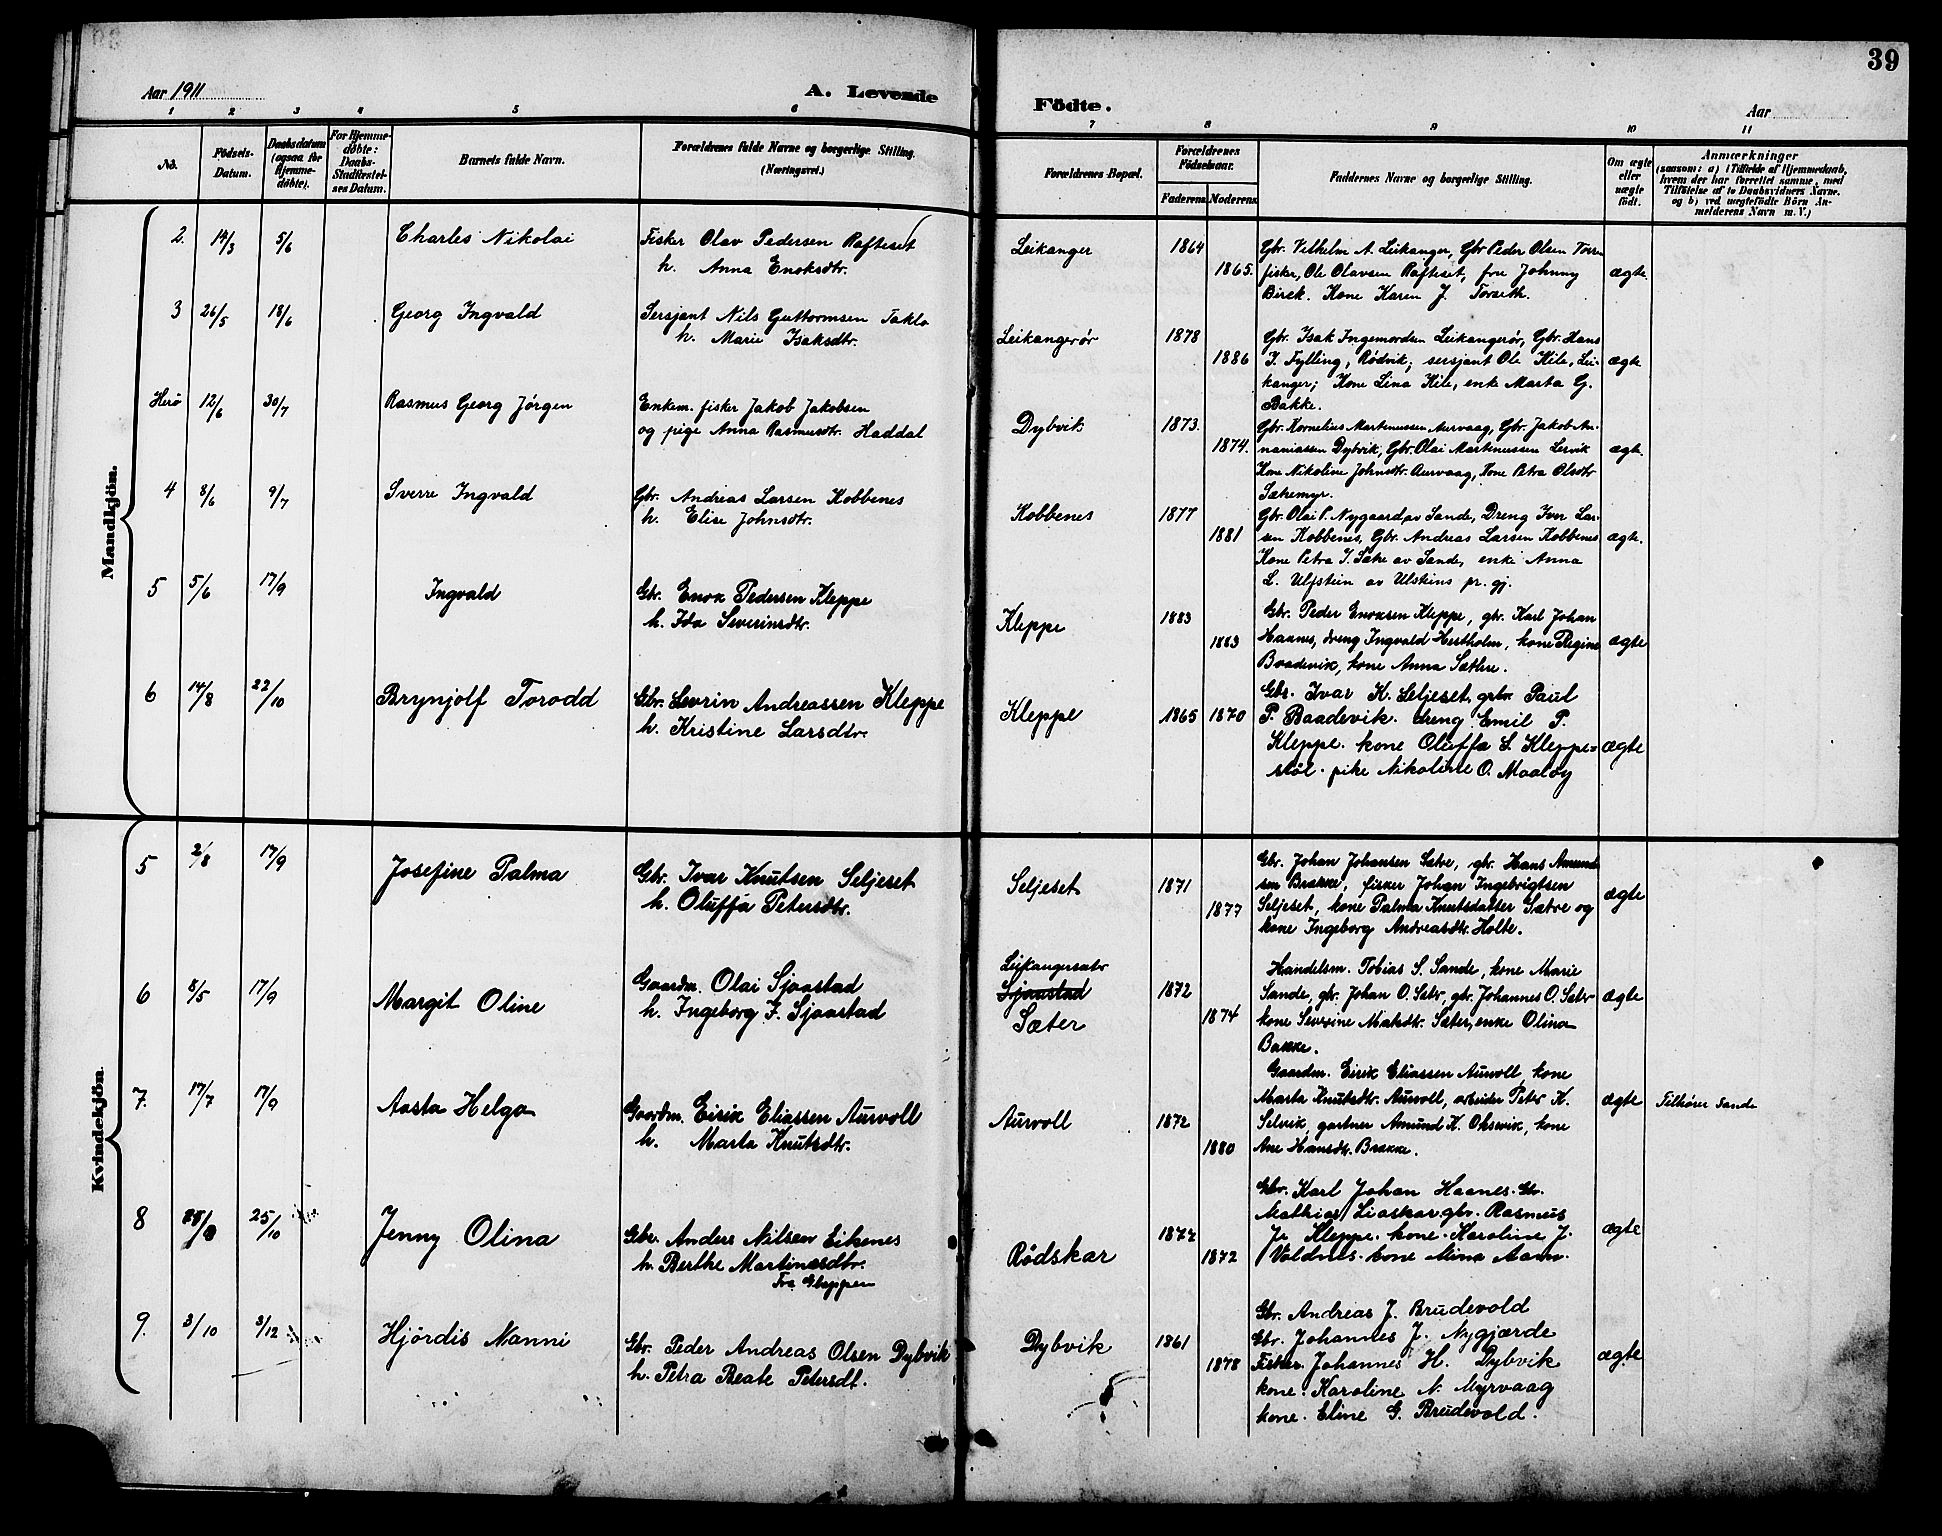 39
Aar 1911
A. Levende
Födte.
Aar
1 2 3 4 5 6 7 8 9 10 11
No.
Födsels-
Datum.
Daabsdatum
(ogsaa for
Hjemme-
døbte).
For Hjemme-
døbte:
Daabs-
Stadfæstel-
ses Datum.
Barnets fulde Navn.
Forældrenes fulde Navne og borgerlige Stilling.
(Næringsvei.)
Forældrenes Bopæl.
Forældrenes
Födselsaar.
Faderens. Moderens.
Faddernes Navne og borgerlige Stilling.
Om ægte
eller
uægte
födt.
Anmærkninger
(saasom: a) i Tilfælde af Hjemmedaab,
hvem der har forrettet samme, med
Tilföielse af to Daabsvidners Navne.
og b) ved uægtefödte Börn An-
melderens Navn m. V.)
Mandkjön.
2. 14/3 5/6
Charles Nikolai
Fisker Olav Pedersen Rafteset
h. Anna Enoksdtr.
Leikanger
1864
1865.
Gbr. Vilhelm A. Leikanger, Gbr Peder Olsen
fisker, Ole Olavsen Rafteset, fru Johnny
Birck. Kone Karen J. Torseth.
ægte
3 26/5 18/6
Georg Ingvald
Sersjant Nils Guttormsen Taklo
h. Marie Isaksdtr.
Leikangerör
1878
1886
Gbr. Isak Ingemordsen Leikangerör, Gbr. Hans
J. Fylling, Rødvik; sersjant Ole Kile, Lei-
kanger; Kone Lina Kile, enke Marta G.
Bakke.
ægte
Herö 12/6 30/7
Rasmus Georg Jörgen
Enkem. fisker Jakob Jakobsen
og pige Anna Rasmusdtr. Haddal
Dybvik
1873.
1874.
Gbr. Kornelius Martinussen Aurvaag, Gbr. Jakob An-
naniassen Dybvik, Gbr. Olai Martinussen Leivik
Kone Nikoline Johnsdtr. Aurvaag, Kone Petra Olsdtr
Sætremyr.
ægte.
4 8/6 9/7
Sverre Ingvald
Gbr. Andreas Larsen Kobbenes
h. Elise Johnsdtr.
Kobbenes
1877
1881
Gbr. Olai P. Nygaard av Sande, Dreng Iver Lar-
sen Kobbenes, Gbr. Andreas Larsen Kobbenes
Kone Petra J. Sætre av Sande, enke Anna
L. Ulfstein av Ulsteins pr. gj.
ægte.
5 5/6 17/9
Ingvald
Gbr. Enok Pedersen Kleppe
h. Ida Severinsdtr.
Kleppe
1883
1883
Gbr. Peder Enoksen Kleppe, gbr. Karl Johan
Haanes, dreng Ingvald Hestholm, kone Regine
Baadevik, kone Anna Sæthre.
ægte
6 14/8 22/10
Brynjolf Torodd
Gbr. Severin Andreassen Kleppe
h. Kristine Larsdtr.
Kleppe
1865 1870
Gbr. Ivar K. Seljeset, gbr. Paul
P. Baadevik. dreng Emil P.
Kleppe. kone Oluffa S. Kleppe-
støl. pike Nikoline O. Maaløy
ægte
Kvindekjön.
5 2/8 17/9
Josefine Palma
Gbr. Ivar Knutsen Seljeset
h. Oluffa Petersdtr.
Seljeset
1871
1877
Gbr. Johan Johansen Sætre, gbr. Hans Amund
sen Brakke, fisker Johan Ingebrigtsen
Seljeset, kone Palma Knutsdatter Sætre og
kone Ingeborg Andreasdtr. Holte.
ægte
6 8/5 17/9
Margit Oline
Gaardm. Olai Sjaastad
h. Ingeborg J. Sjaastad
Leikangersætr
Sjaastad
Sæter
1872
1874
Handelsm. Tobias S. Sande, kone Marie
Sande, gbr. Johan O. Sæter, gbr. Johannes O. Sæter
kone Severine Matsdtr. Sæter, enke Olina
Bakke.
ægte
7. 17/7 17/9
Aasta Helga
Gaardm. Eirik Eliassen Aurvoll
h. Marta Knutsdtr.
Aurvoll
1872
1880
Gaardm. Eirik Eliassen Aurvoll, kone
Marta Knutsdtr. Aurvoll, arbeider Peter K.
Selvik, gartner Amund K. Oksvik, kone
Ane Hansdtr. Brakke.
ægte
Tilhører Sande
8 25/10
Jenny Olina
Gbr. Anders Nilsen Eikenes
h. Berthe Martinesdtr.
fra Gloppen
Rødskar
1872
1872
Gbr. Karl Johan Haanes. Gbr.
Mathias Liaskar. gbr. Rasmus
Jr. Kleppe. kone. Karoline J.
Valdnes. kone Mina Aam.
ægte
9. 3/10 3/12
Hjördis Nanni
Gbr. Peder Andreas Olsen Dybvik
h. Petra Beate Petersdt.
Dybvik
1861
1878
Gbr. Andreas J. Brudevold
Gbr. Johannes J. Nygjærde
Fisker. Johannes H. Dybvik
kone. Karoline N. Myrvaag
kone. Eline G. Brudevold.
ægte